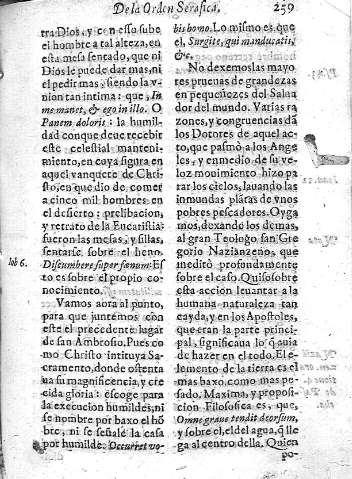 De la Orden Serafica,
259
tra Dios, y con esso sube
el hombre a tal alteza, en
esta mesa sentado, que ni
Dios le puede dar mas, ni
el pedir mas, siendo la v-
nion tan intima: que, In
me manet, & ego in illo. O
Panem doloris: la humil-
dad conque deue recebir
este celestial manteni-
miento, en cuya figura en
aquel vanquete de Chri-
sto, en que dio de comer
a cinco mil hombres en
el desierto; prelibacion,
y retrato de la Eucaristia:
fueron las mesas, y sillas,
sentarse sobre el heno.
Iob 6.
Discumbere super fœnum: Es
to es sobre el propio co-
nocimiento.
Vamos aora al punto,
para que juntemos con
este el precedente lugar
de san Ambrosio. Pues co
mo Christo intituya Sa-
cramento, donde ostenta
ua su magnificencia, y cre
cida gloria: escoge para
la execucion humildes, ni
se nombre por baxo el hõ
bre, ni se señale la casa
por humilde. Occurret vo-
bis homo. Lo mismo es que
el, Surgite, qui manducatis,
&c.
No dexemos las mayo
res prueuas de grandezas
en pequeñezes del Salua
dor del mundo. Varias ra
zones, y congruencias dã
los Dotores de aquel ac-
to, que pasmò a los Ange
les, y enmedio de su ve-
loz mouimiento hizo pa
rar los cielos, lauando las
inmundas plãtas de vnos
pobres pescadores. Oyga
mos, dexando los demas,
al gran Teologo san Gre
gorio Nazianzeno, que
meditò profundamente
sobre el caso. Quiso sobre
esta accion leuantar a la
humana naturaleza tan
cayda, y en los Apostoles,
que eran la parte princi-
pal, significaua lo q̃ auia
de hazer en el todo. El e-
lemento de la tierra es el
mas baxo, como mas pe-
sado, Maxima, y proposi-
cion Filosofica es, que,
Omne graue tendit deorsum,
y sobre el, el del agua, q̃ lle
ga al centro della. Quien
po-